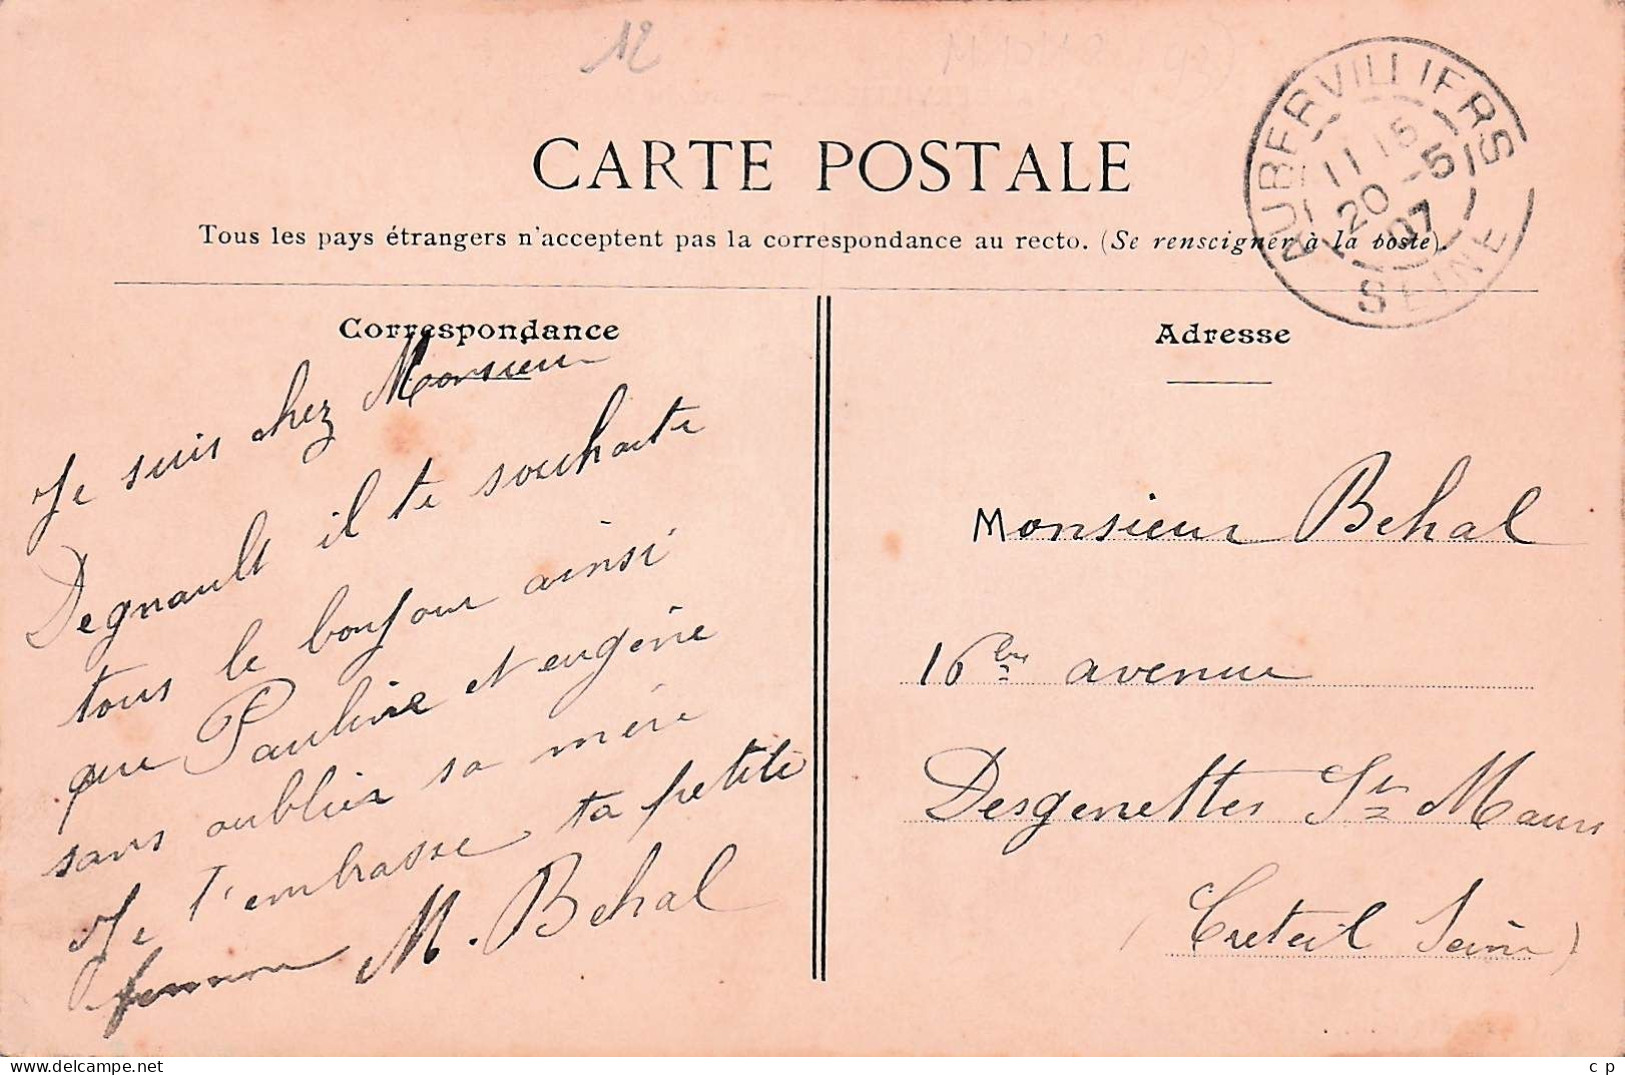 12
CARTE POSTALE
Tous les pays étrangers n'acceptent pas la correspondance au recto. (Se renseigner à la poste).
AUBERVILLIERS
11 15
20 -5
07
SEINE
Correspondance
Je suis chez Monsieur
Degnault il te souhaite
tous le bonjour ainsi
que Pauline et eugénie
sans oublier sa mère
Je t'embrasse ta petite
femme M. Behal
Adresse
Monsieur Behal
16 bis avenue
Desgenettes St Maur
(Creteil Seine)
c p